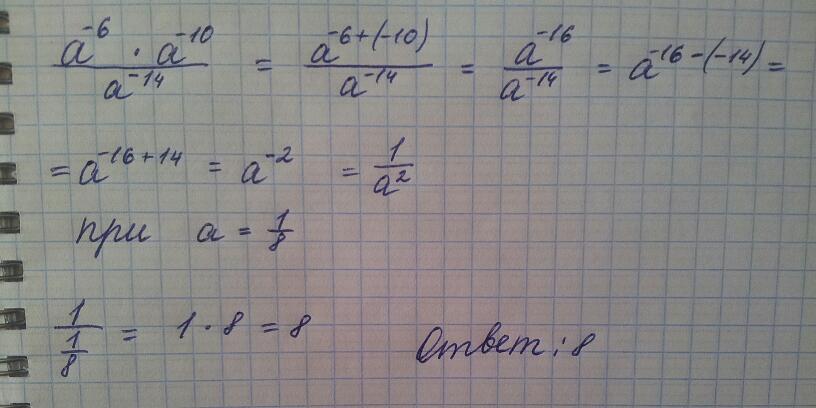 a⁻⁶ · a⁻¹⁰ / a⁻¹⁴ = a⁻⁶⁺⁽⁻¹⁰⁾ / a⁻¹⁴ = a⁻¹⁶ / a⁻¹⁴ = a⁻¹⁶⁻⁽⁻¹⁴⁾ =
= a⁻¹⁶⁺¹⁴ = a⁻² = 1/a²
при a = 1/8
1/(1/8) = 1 · 8 = 8 Ответ: 8